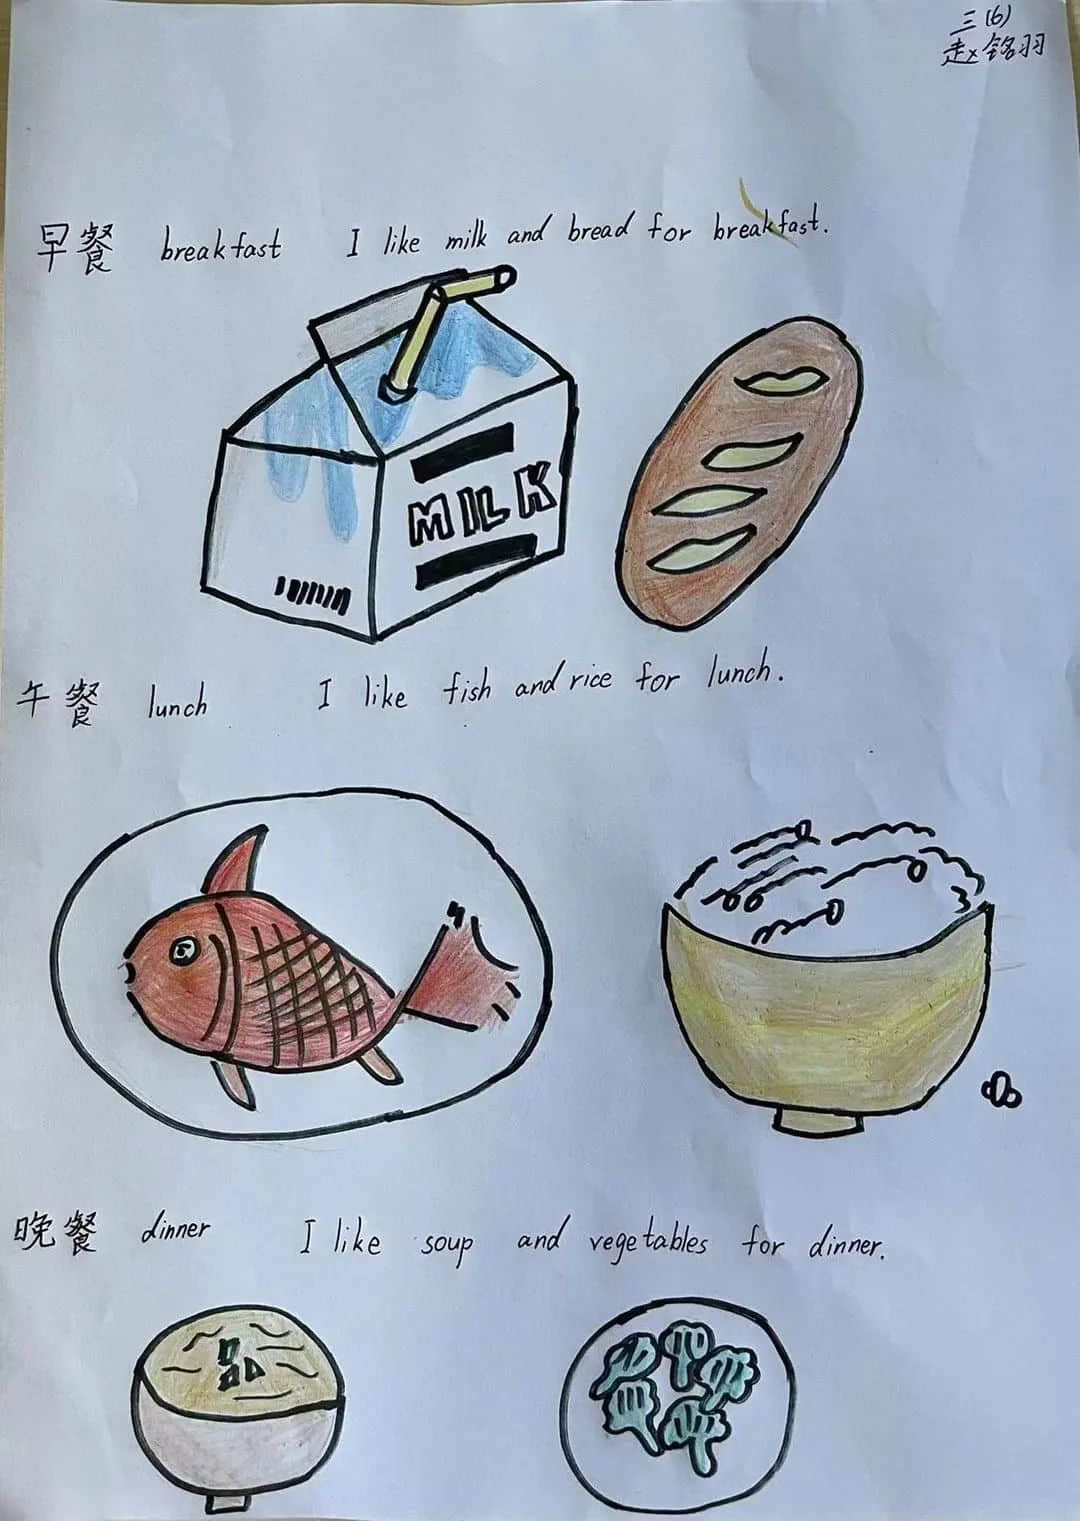 三(6)
赵铭羽
早餐 breakfast I like milk and bread for breakfast.
MILK
午餐 lunch I like fish and rice for lunch.
晚餐 dinner I like soup and vegetables for dinner.